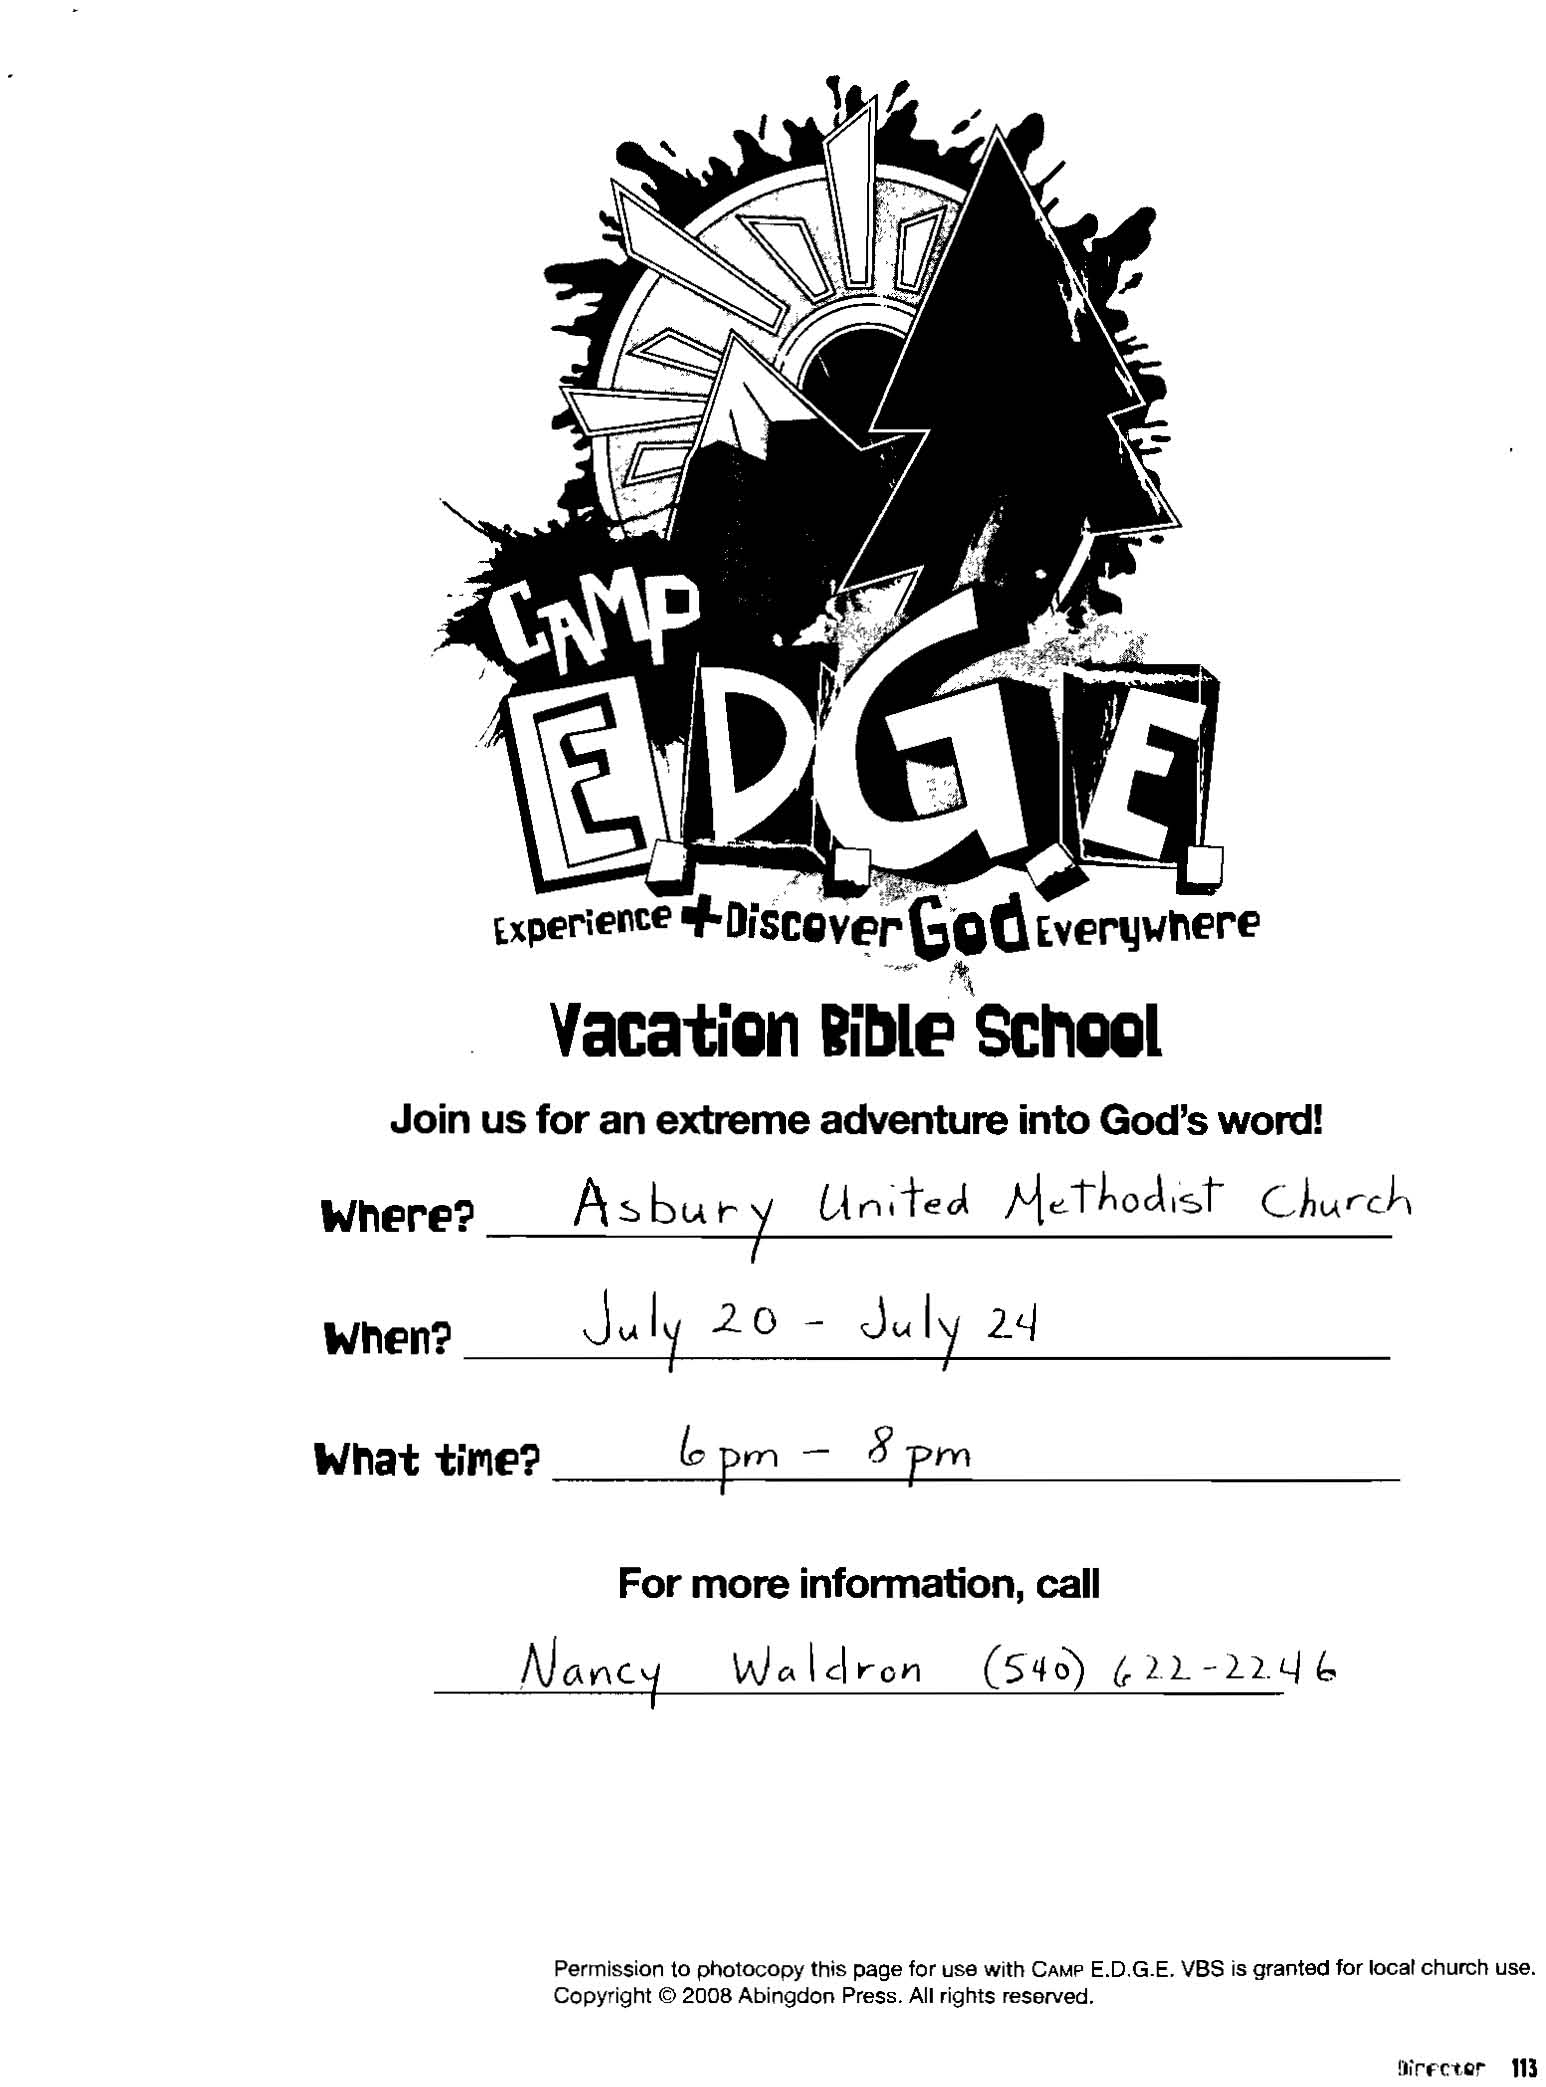 CAMP
E.D.G.E.
Experience + Discover God Everywhere
Vacation Bible School
Join us for an extreme adventure into God's word!
Where? Asbury United Methodist Church
When? July 20 - July 24
What time? 6pm - 8pm
For more information, call
Nancy Waldron (540) 622-2246
Permission to photocopy this page for use with CAMP E.D.G.E. VBS is granted for local church use.
Copyright © 2008 Abingdon Press. All rights reserved.
Director 113